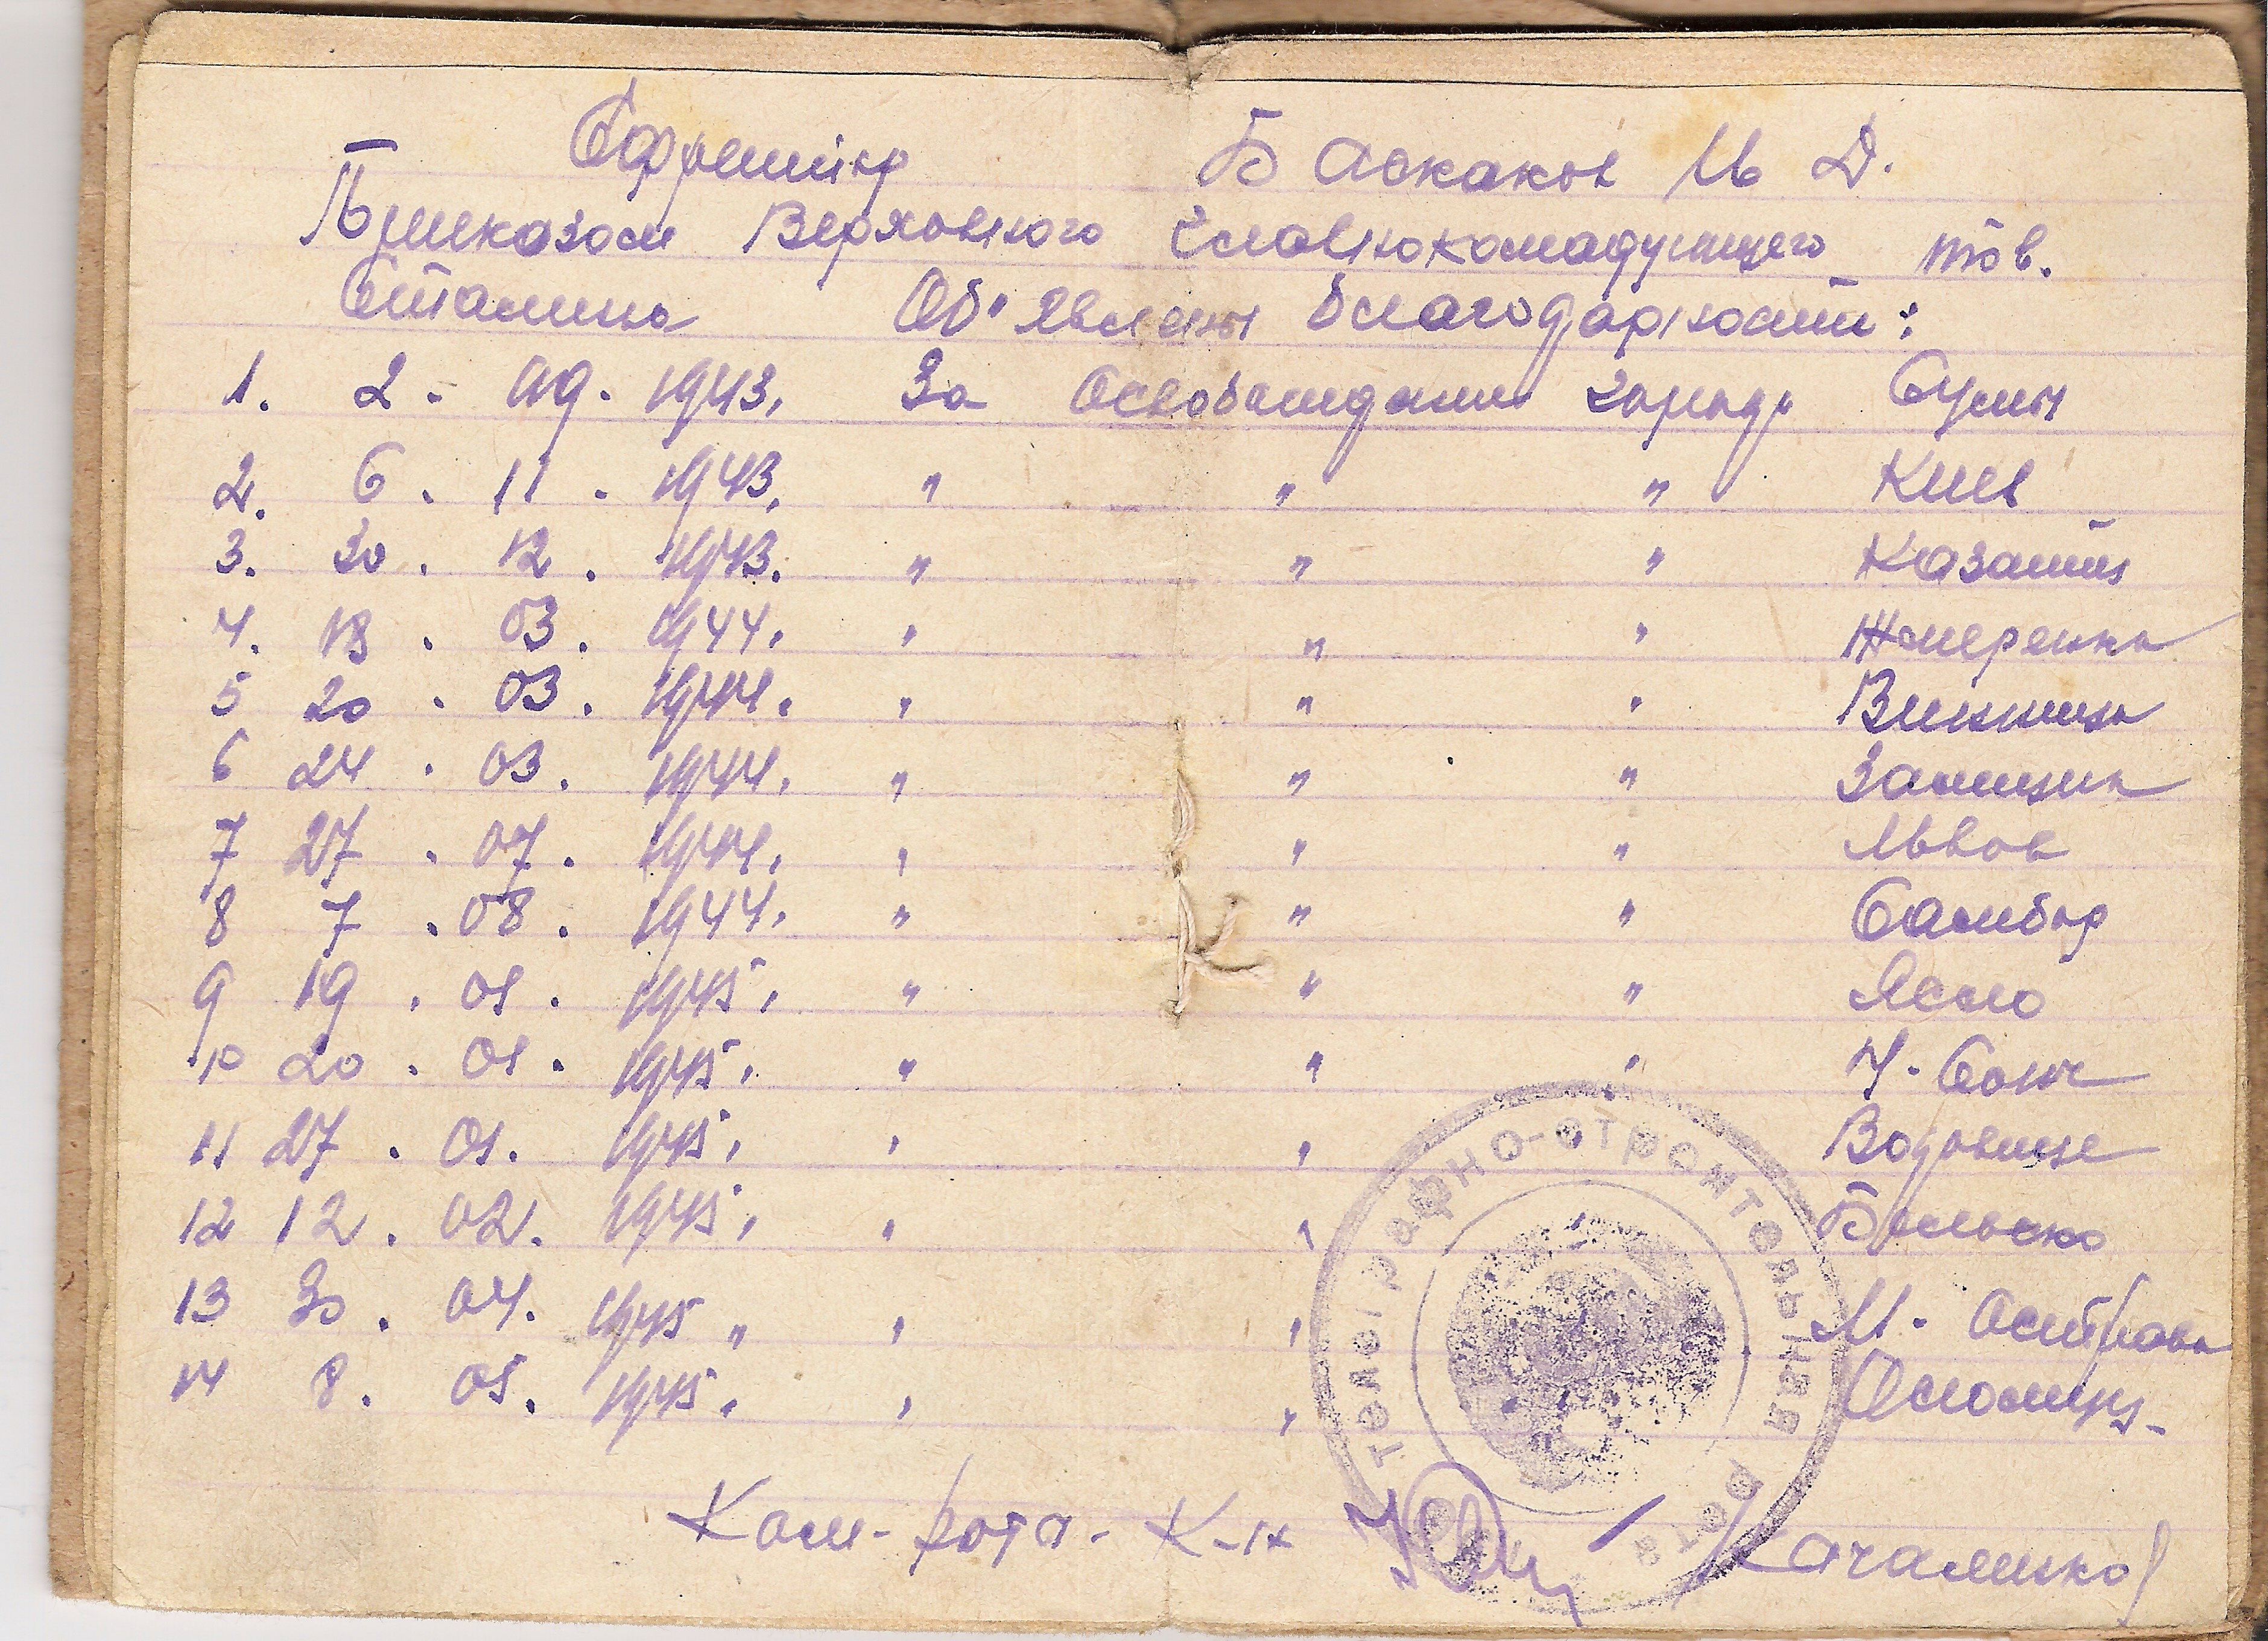 Ефрейтор Баскаков М Д.
Приказом Верховного Главнокомадующего тов.
Сталина Об'явлены благодарности:
1. 2 - 09. 1943, За Освобождение города Сумы
2. 6. 11. 1943, " " " Киев
3. 30. 12. 1943. " " " Казатин
4. 18. 03. 1944. " " " Жмеренка
5 20. 03. 1944. " " " Винница
6 24. 03. 1944. " " "
7 27. 07. 1944, " " " Львов
8 7. 08. 1944. " " " Самбор
9 19. 01. 1945, " " " Ясло
10 20. 01. 1945, " " " Н. Сонч
11 27. 01. 1945, " " Водовице
12 12. 02. 1945, " " Бельско
13 30. 04. 1945 " " " М. Острава
14 8. 05. 1945, " " Оломуц
телеграфно-строительная рота
Ком-рота- К-н /Качаленко/